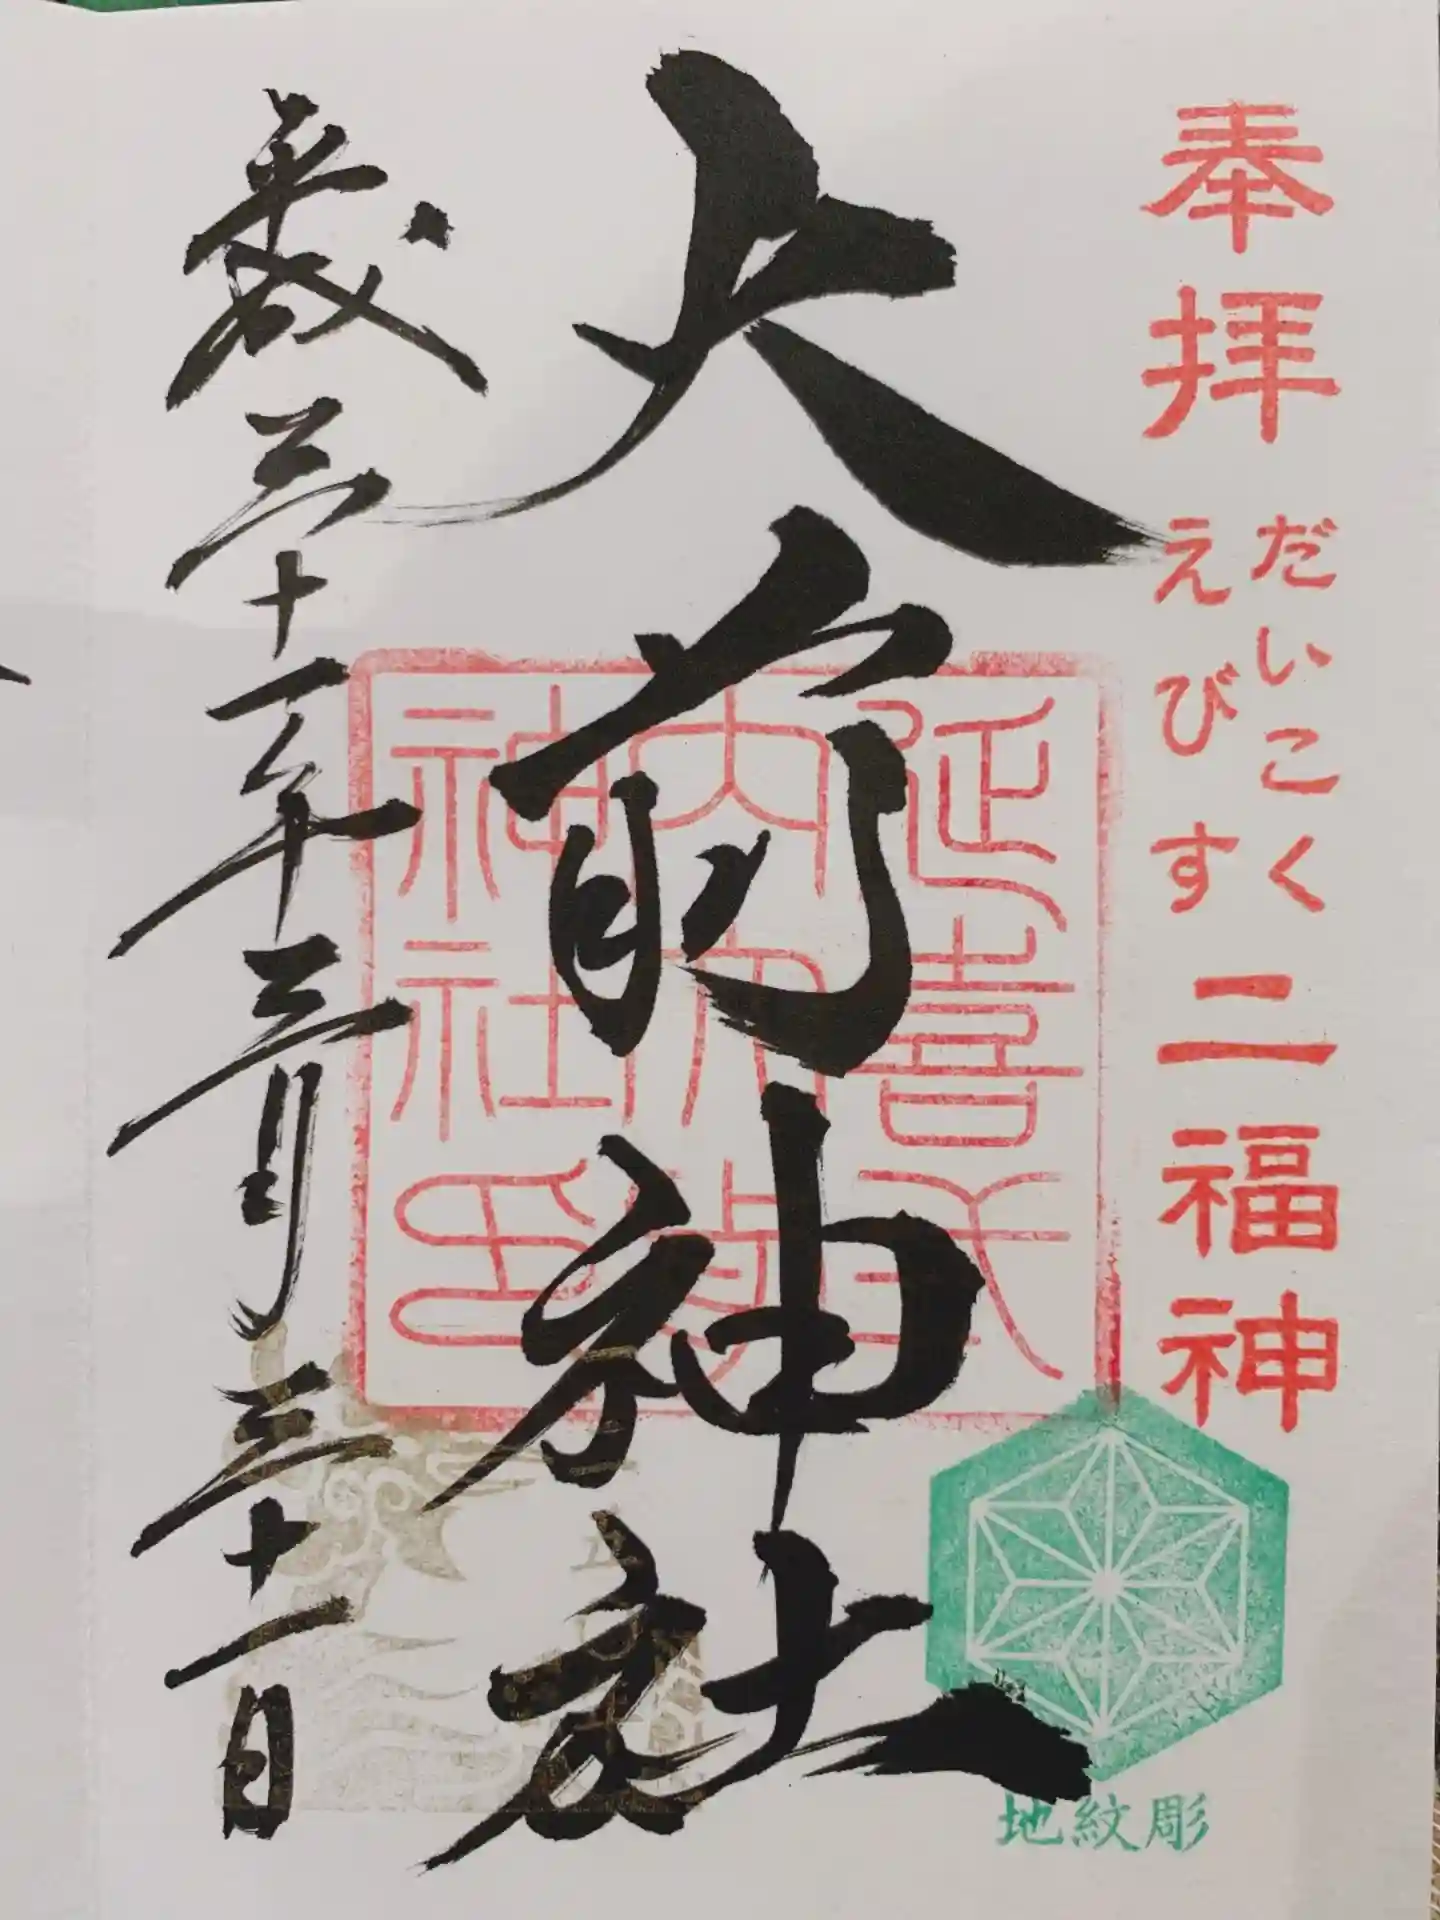 奉拝
だいこく
えびす
二福神
大前神社
延喜式
内大前
神社印
平成三十一年三月三十一日
地紋彫